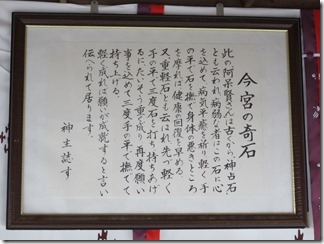 今宮の奇石
此の阿呆賢さんは古くから神占石
とも云われ病弱な者はこの石に心
を込めて病気平癒を祈り軽く手
の平で石を撫で身体の悪きところ
を摩れば健康の回復を早める。
又重軽石とも云はれ先づ軽く
手の平で三度石を打ち持ちあげ
るにたいそう重く成って再度願い
事を込めて三度手の平で撫でて
持ち上げる。
軽く成れば願いが成就すると古い
伝へられて居ります。
神主誌す